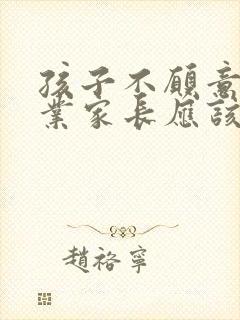 孩子不願意
業家長應該
趙褣寧